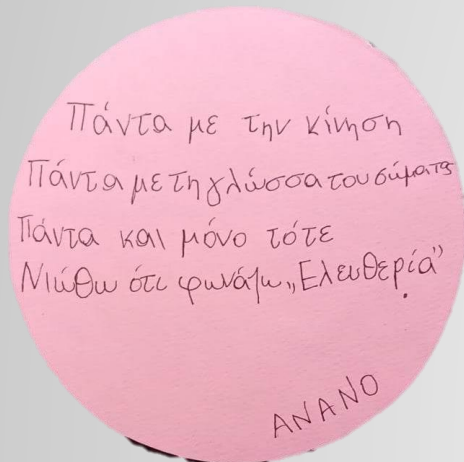 Πάντα με την κίνηση
Πάντα με τη γλώσσα του σώματος
Πάντα και μόνο τότε
Νιώθω ότι φωνάζω „Ελευθερία"
ΑΝΑΝΟ